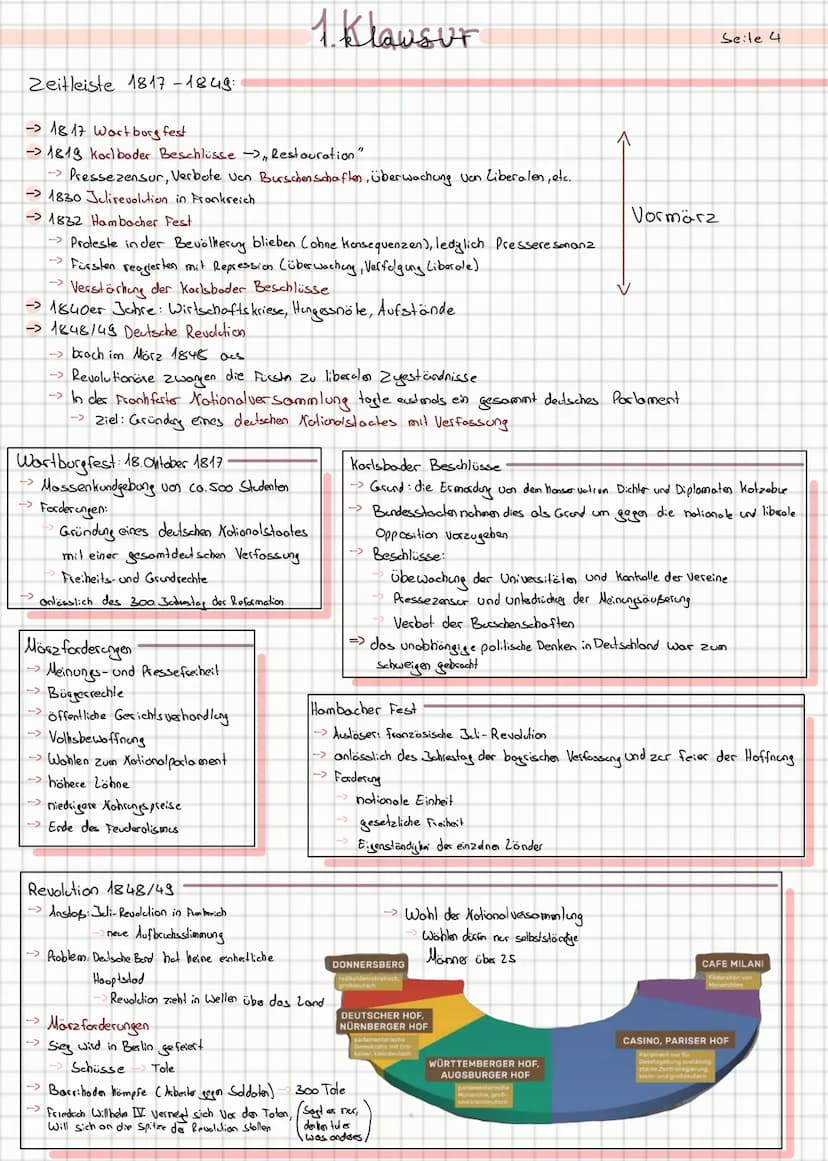 1. Klausur
Seite 4
Zeitleiste 1817-1849:
-> 1817 Wartburgfest
-> 1819 Karlbader Beschlüsse ->„Restauration"
-> Pressezensur, Verbote von Burschenschaften, überwachung von Liberalen, etc.
-> 1830 Julirevolution in Frankreich
-> 1832 Hambacher Fest
Vormärz
-> Proteste in der Bevölkerung blieben (ohne Konsequenzen), lediglich Presseresonanz
-> Fürsten reagierten mit Repression (überwachung, Verfolgung Liberale)
-> Verstärkung der Karlsbader Beschlüsse
-> 1840er Jahre: Wirtschaftskriese, Hungersnöte, Aufstände
-> 1848/49 Deutsche Revolution
-> brach im März 1848 aus
-> Revolutionäre zwangen die Fürsten zu liberalen Zugeständnisse
-> In der Frankfurter Nationalversammlung tagte erstmals ein gesammt deutsches Parlament
-> Ziel: Gründung eines deutschen Nationalstaates mit Verfassung
Wartburgfest: 18. Oktober 1817
-> Massenkundgebung von ca. 500 Studenten
-> Forderungen:
-> Gründung eines deutschen Nationalstaates
mit einer gesamtdeutschen Verfassung
-> Freiheits- und Grundrechte
-> anlässlich des 300. Jahrestag der Reformation
Karlsbader Beschlüsse
-> Grund: die Ermordung von dem konservativen Dichter und Diplomaten Kotzebue
-> Bundesstaaten nahmen dies als Grund um gegen die nationale und liberale
Opposition vorzugehen
-> Beschlüsse:
-> Überwachung der Universitäten und Kontrolle der Vereine
-> Pressezensur und Unterdrückung der Meinungsäußerung
-> Verbot der Burschenschaften
=> das unabhängige politische Denken in Deutschland war zum
schweigen gebracht
Märzforderungen
-> Meinungs- und Pressefreiheit
-> Bürgerrechte
-> öffentliche Gerichtsverhandlung
-> Volksbewaffnung
-> Wahlen zum Nationalparlament
-> höhere Löhne
-> niedrigere Nahrungspreise
-> Ende des Feudalismus
Hambacher Fest
-> Auslöser: französische Juli-Revolution
-> anlässlich des Jahrestag der bayrischen Verfassung und zur Feier der Hoffnung
-> Forderung
-> nationale Einheit
-> gesetzliche Freiheit
-> Eigenständigkei der einzelnen Länder
Revolution 1848/49
-> Anstoß: Juli-Revolution in Frankreich
-> neue Aufbruchsstimmung
-> Problem: Deutsche Bund hat keine einheitliche
Hauptstad
-> Revolution zieht in Wellen über das Land
-> Märzforderungen
-> Sieg wird in Berlin gefeiert
-> Schüsse -> Tote
-> Barrikaden kämpfe (Arbeiter gegen Soldaten) -> 300 Tote
-> Friedrich Wilhelm IV verneigt sich vor den Toten,
Will sich an die Spitze der Revolution stellen
(Sagt er nur,
denken tut er
was anderes)
-> Wahl der Nationalversammlung
-> Wählen dürfen nur selbstständige
Männer über 25
DONNERSBERG
radikaldemokratisch,
großdeutsch
DEUTSCHER HOF,
NÜRNBERGER HOF
parlamentarische
Demokratie mit Erb-
kaiser, kleindeutsch
WÜRTTEMBERGER HOF,
AUGSBURGER HOF
parlamentarische
Monarchie, groß-
und kleindeutsch
CASINO, PARISER HOF
Parlament nur für
Gesetzgebung zuständig,
starke Zentralregierung,
klein- und großdeutsch
CAFE MILANI
Föderation von
Monarchien